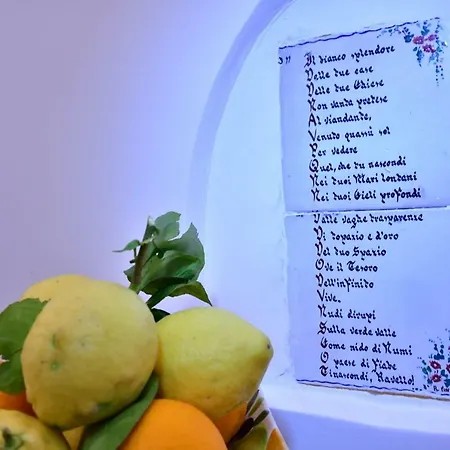 Il bianco splendore
Delle tue case
Delle tue Chiese
Non vanta pretese
Al viandante,
Venuto quassù sol
Per vedere
Quel, che tu nascondi
Nei tuoi Mari lontani
Nei tuoi Cieli profondi
Dalle vaghe trasparenze
Di topazio e d'oro
Del tuo Spazio
Ove il Tesoro
Dell'infinito
Vive.
Nudi dirupi
Sulla verde valle
Come nido di Numi
O paese di Fiabe
T'inascondi, Ravello!